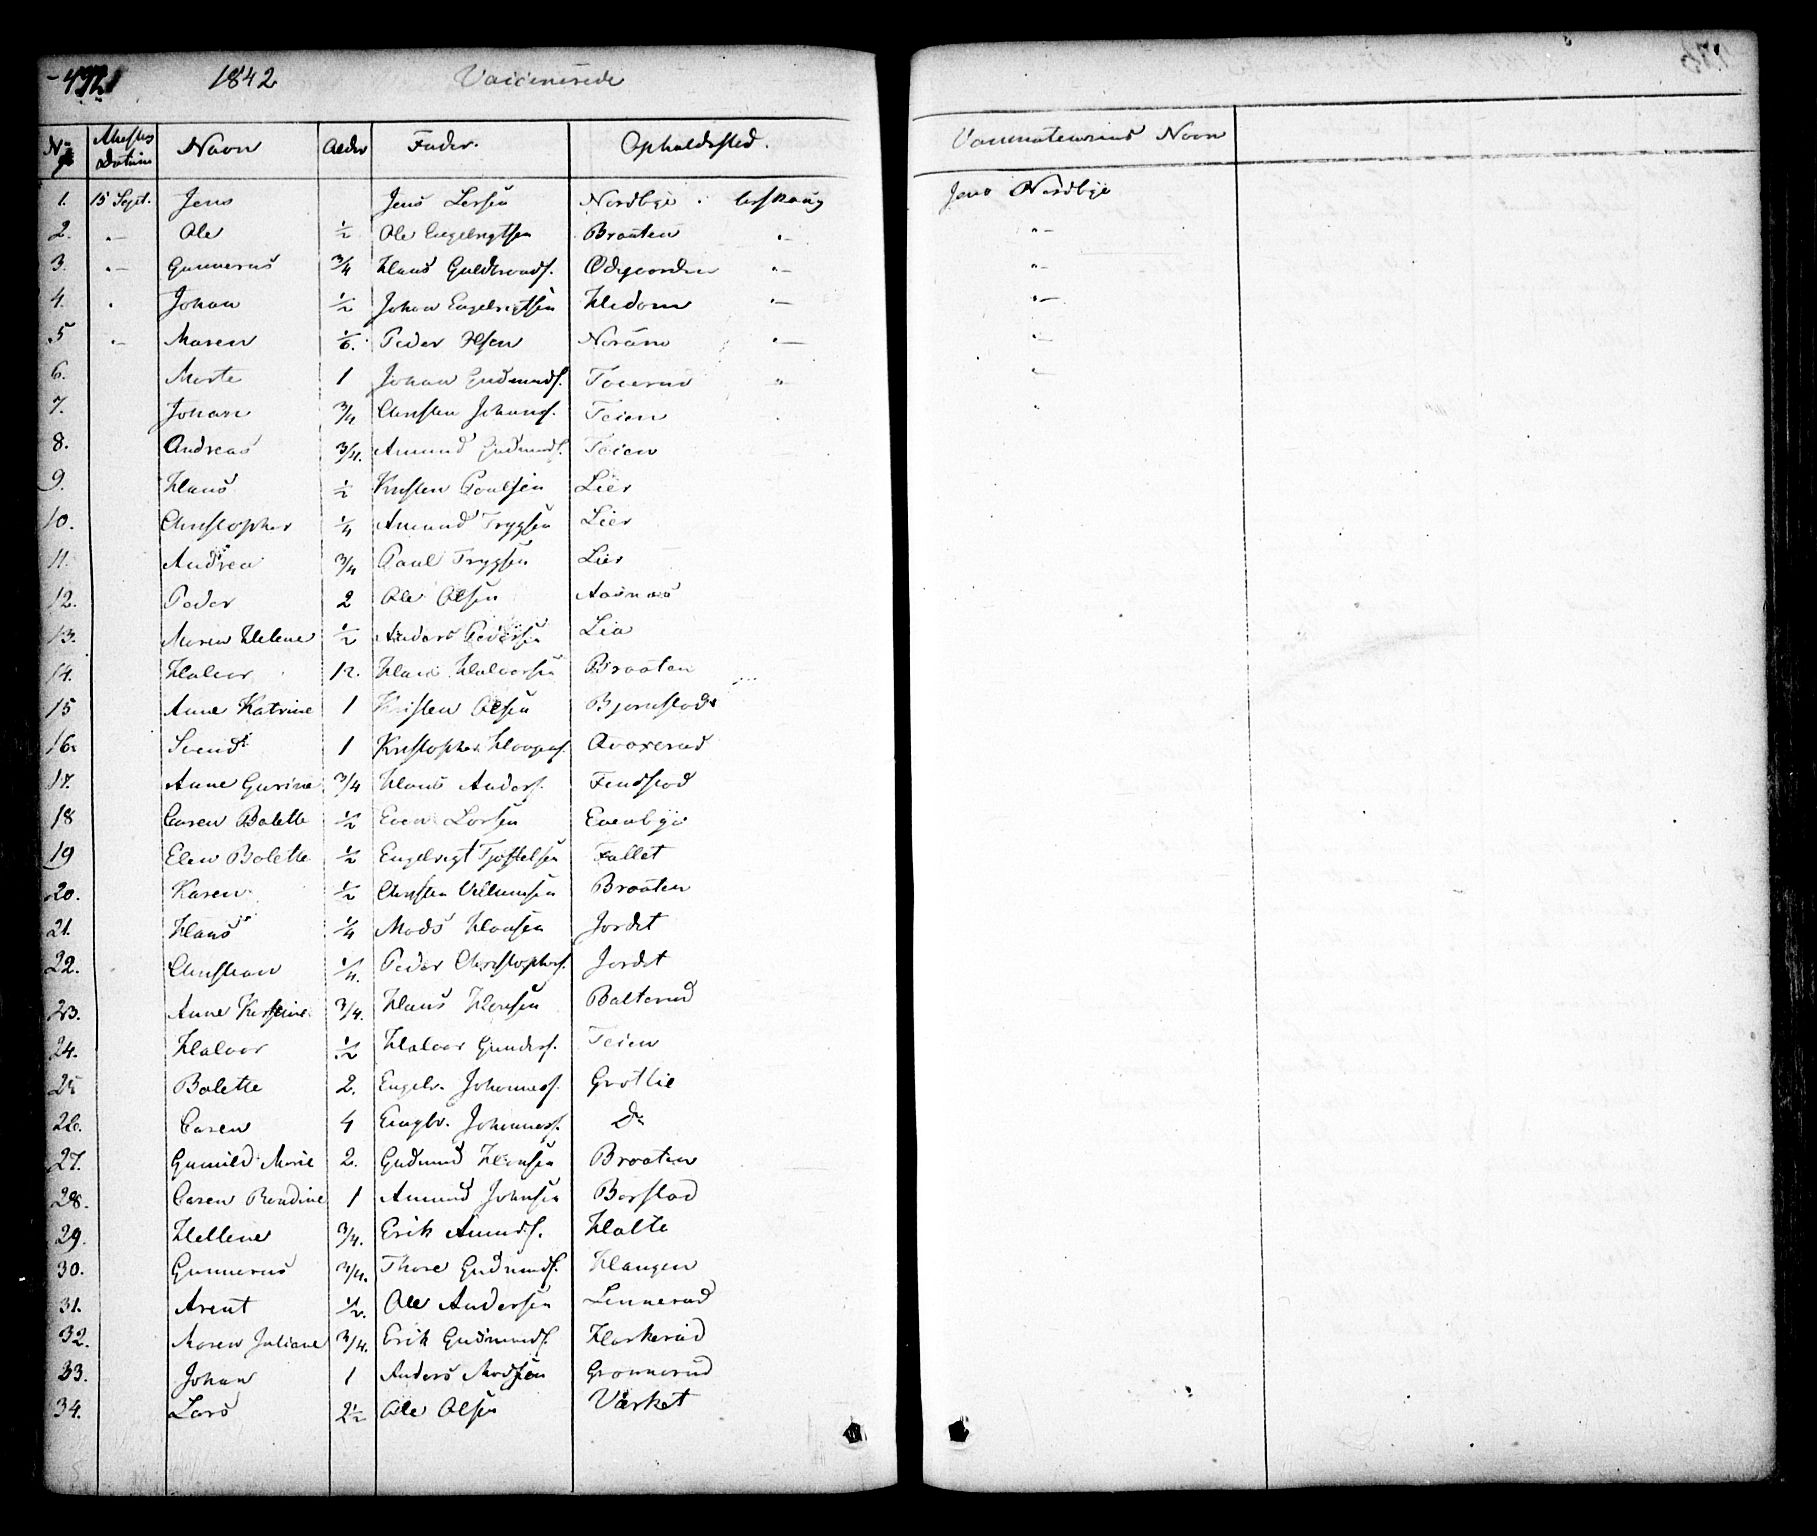 1842 Vaccinerede
No Attestens Datum Navn Alder Fader. Opholdssted. Vaccinateurens Navn
1. 15 Sept. Jens Jens Larsen Nordbye Jens Nordbye
2. " Ole 1/2 Ole Engebrigtsen Braaten " "
3. " Gunnerus 3/4 Hans Guldbrands. Ødegaarden " "
4. " Johan 1/2 Johan Engebrigtsen " "
5 " Maren 1/6. Peder Olsen " "
6. Marte 1 Johan Gudmunds. " "
7. Johan 3/4 Christen Johans. Teien "
8. Andreas 3/4. Amund Gudmunds. Teien
9. Hans 1/2 Kristen Paulsen Lier
10. Christopher 1/4 Amund Trygsen Lier
11. Andrea 3/4 Paul Trygsen Lier
12. Peder 2 Ole Olsen Aasnæs
13. Maren Helene 1/2 Anders Pedersen Lia
14. Halvor 12. Hans Halvorsen Braaten
15 Anne Katrine 1 Kristen Olsen Bjørnstad
16. Svend 1 Kristopher
17. Anne Gurine 3/4 Hans Anders. Fendstad
18 Caren Bolette 1/2 Even Larsen Evenbye
19 Elen Bolette 1/2 Engebrigt Tjøstelsen Fallet
20. Karen 1/2 Christen Villumsen Braaten
21. Hans 1/4 Mads Hansen Jordet
22. Christian 1/4. Peder Christophers. Jordet
23. Anne Kirstine 3/4. Hans Hansen Balterud
24. Halvor 1/2 Halvor Gunders. Teien
25 Bolette 2. Engebr. Johanness. Grøtlie
26. Caren 4 Engbr. Johanness. Do
27. Gunild Marie 2. Gudmund Hansen Braaten
28. Caren Randine 1 Amund Johnsen Børstad
29. Hellene 3/4. Erik Amunds. Holte
30. Gunnerus 3/4. Thore Gudmunds. Haugen
31. Arent 1/2. Ole Andersen Linnerud
32. Maren Juliane 3/4. Erik Gudmunds. Harkerud
33. Johan 1 Anders Madsen Grønnerud
34. Lars 2 1/2 Ole Olsen Værket